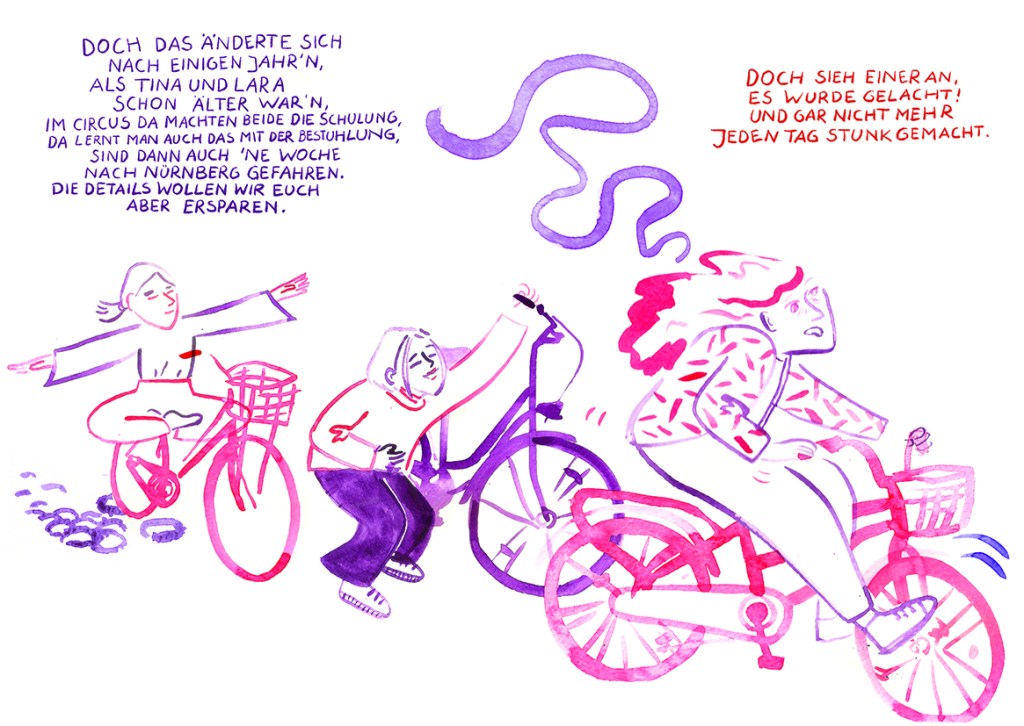 DOCH DAS ÄNDERTE SICH
NACH EINIGEN JAHR'N,
ALS TINA UND LARA
SCHON ÄLTER WAR'N,
IM CIRCUS DA MACHTEN BEIDE DIE SCHULUNG,
DA LERNT MAN AUCH DAS MIT DER BESTUHLUNG,
SIND DANN AUCH 'NE WOCHE
NACH NÜRNBERG GEFAHREN.
DIE DETAILS WOLLEN WIR EUCH
ABER ERSPAREN.
DOCH SIEH EINER AN,
ES WURDE GELACHT!
UND GAR NICHT MEHR
JEDEN TAG STUNK GEMACHT.